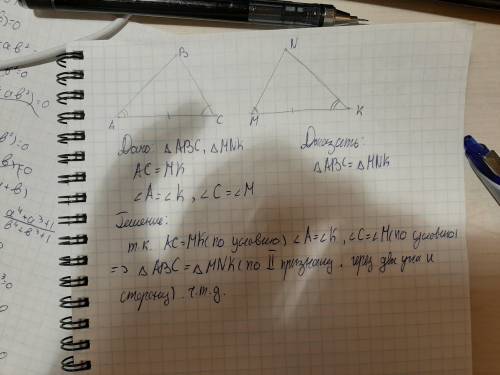 B
N
A
C
M
K
Дано: △ABC, △MNK
Доказать:
AC=MK
△ABC=△MNK
∠A=∠K, ∠C=∠M
Решение:
т.к. AC=MK(по условию) ∠A=∠K, ∠C=∠M(по условию)
=> △ABC=△MNK(по II признаку, через два угла и
сторону). ч.т.д.